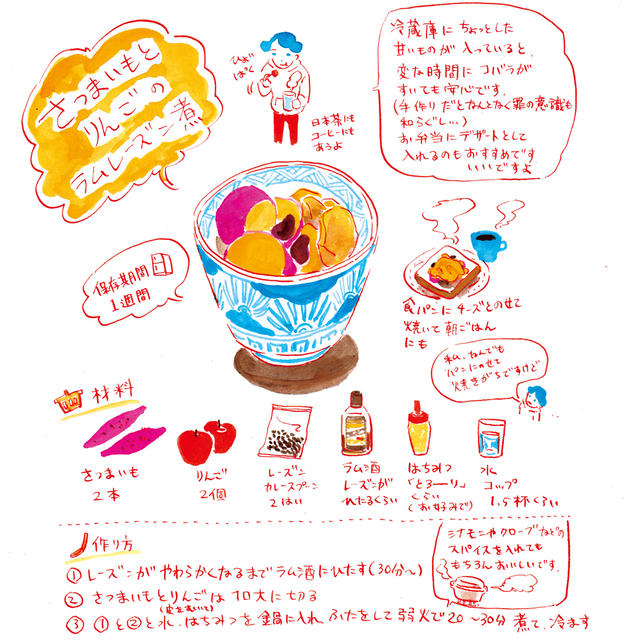 さつまいもと
りんごの
ラムレーズン煮
ひょい
ぱく
日本茶にも
コーヒーにも
あうよ
冷蔵庫にちょっとした
甘いものが入っていると、
変な時間にコバラが
すいても安心です。
(手作りだとなんとなく罪の意識も
和らぐし…)
お弁当にデザートとして
入れるのもおすすめです
いいですよ
保存期間
1週間
食パンにチーズとのせて
焼いて朝ごはん
にも
私、なんでも
パンにのせて
焼きがちですけど
材料
さつまいも
2本
りんご
2個
レーズン
カレースプーン
2はい
ラム酒
レーズンが
ひたるくらい
はちみつ
「とろーり」
くらい
(お好みで)
水
コップ
1.5杯くらい
作り方
シナモンやクローブなどの
スパイスを入れても
もちろんおいしいです。
① レーズンがやわらかくなるまでラム酒にひたす(30分〜)
② さつまいもとりんごは一口大に切る
(皮をむいて)
③ ①と②と水、はちみつを鍋に入れ ふたをして弱火で20〜30分 煮て、冷ます